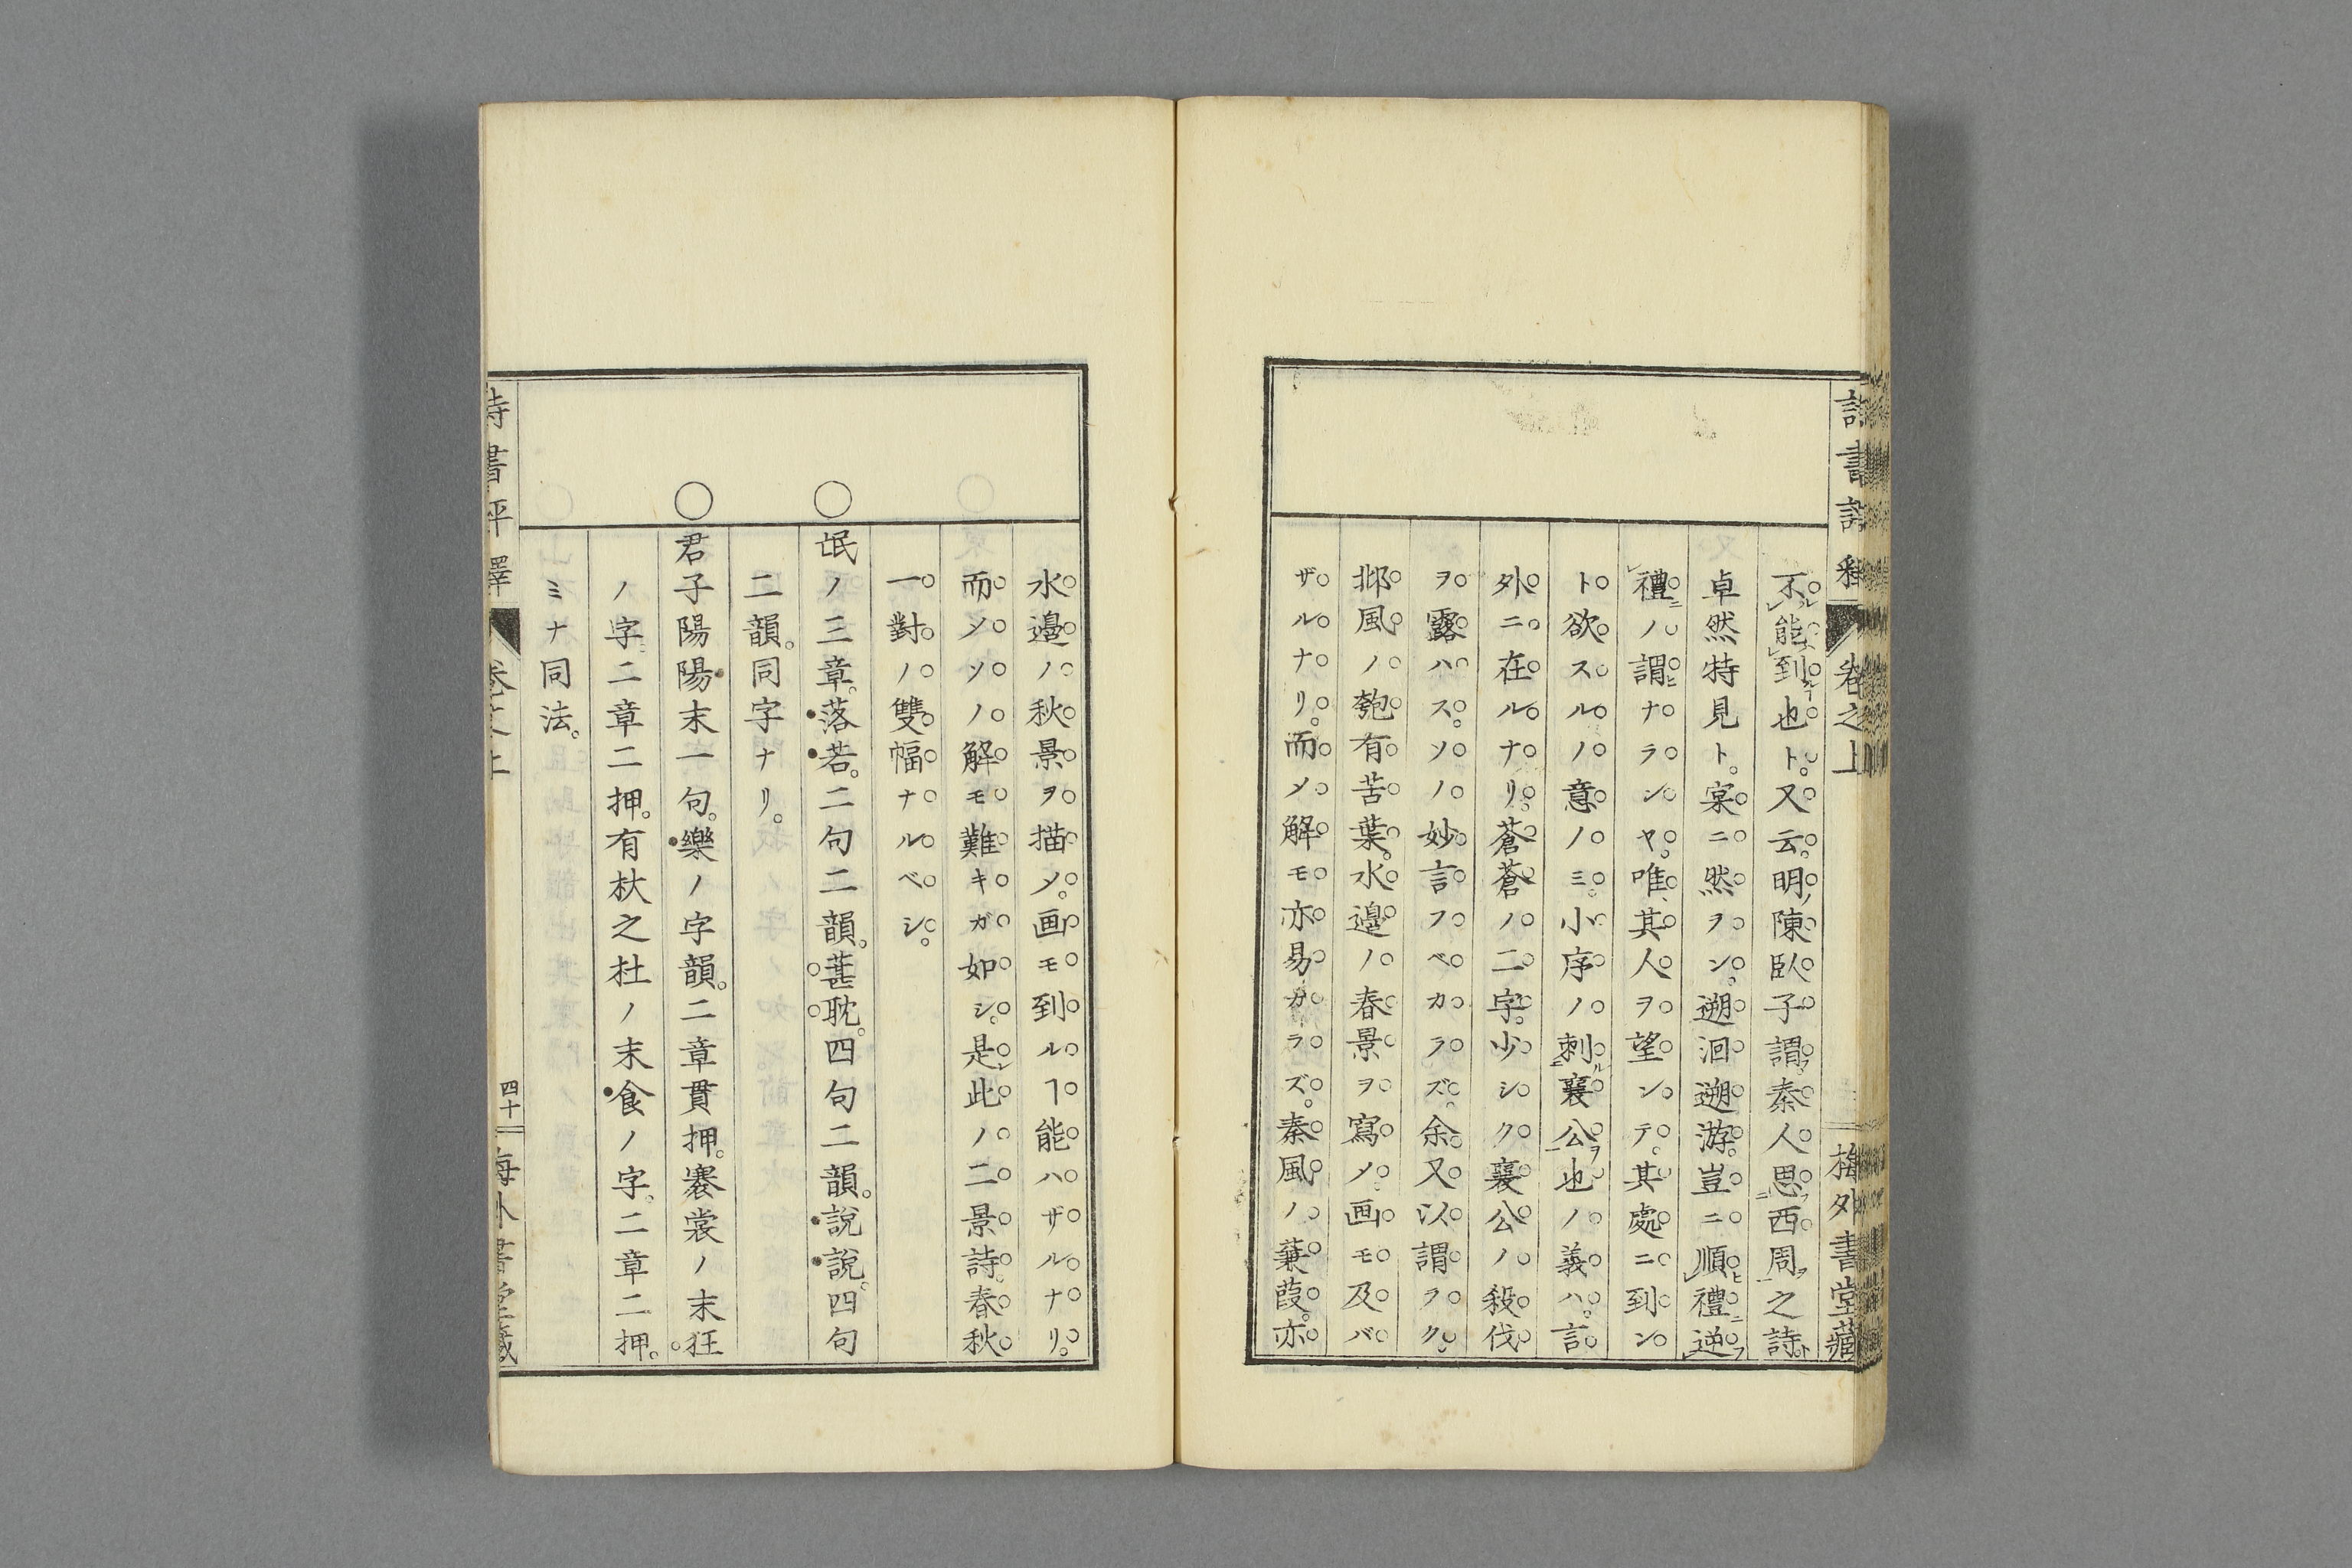 不能到也ト。又云。明陳臥子謂。秦人思西周之詩
卓然特見ト。寔ニ然ヲン。遡洄遡游。豈ニ順禮逆
禮ノ謂ナランヤ。唯其人ヲ望ンテ。其處ニ到ン
ト欲スルノ意ノミ。小序ノ刺襄公也ノ義ハ。言
外ニ在ルナリ。蒼蒼ノ二字。少シク襄公ノ殺伐
ヲ露ハス。ソノ妙言フベカラズ。余又以謂ラク。
邶風ノ匏有苦葉。水邉ノ春景ヲ寫メ画モ及バ
ザルナリ。而メ解モ亦易カラズ。秦風ノ蒹葭。亦
詩書評釋 卷之上 梅外書堂藏
水邉ノ秋景ヲ描メ。画モ到ルヿ能ハザルナリ。
而メソノ解モ難キガ如シ。是此ノ二景詩。春秋
一對ノ雙幅ナルベシ。
○氓ノ三章。落若。二句二韻。葚耽。四句二韻。説説。四句
二韻。同字ナリ。
○君子陽陽末一句。樂ノ字韻。二章貫押。褰裳ノ末狂
ノ字二章二押。有杕之杜ノ末食ノ字。二章二押。
ミナ同法。
詩書評釋 卷之上 四十 梅外書堂藏